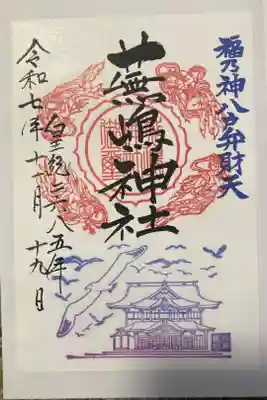 福乃神八戸弁財天
蕪嶋神社
皇紀二六八五年
令和七年十一月十九日